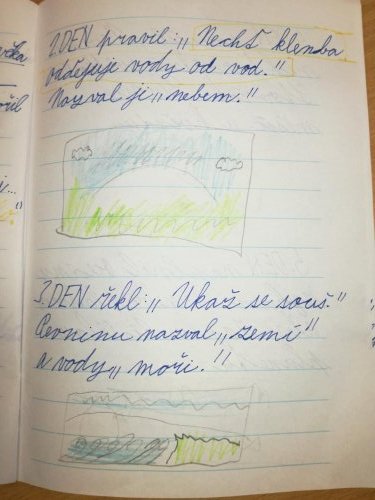 2.DEN pravil: „Nechť klenba
oddějuje vody od vod."
Nazval ji „nebem."
3.DEN řekl: „Ukaž se souš."
Pevninu nazval „zemí"
a vody „moři."